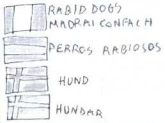 RABID DOGS
MADRAI CONFACH
PERROS RABIOSOS
HUND
HUNDAR